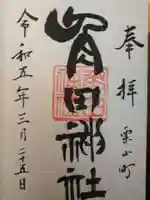 奉拝
栗山町
角田神社
令和五年三月二十五日